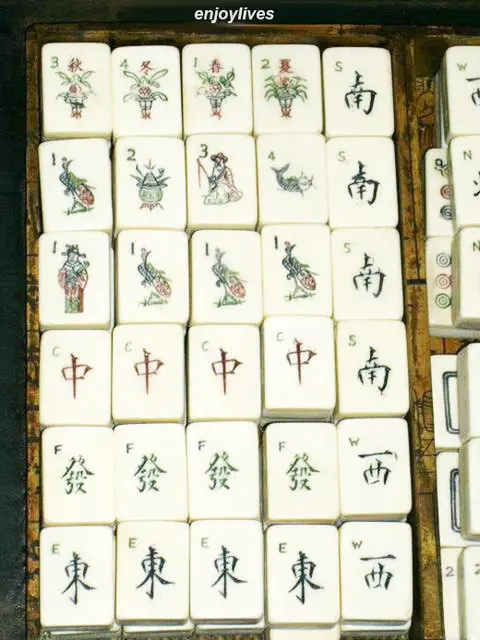 enjoylives
3 秋 4 冬 1 春 2 夏 S 南 W
1 2 3 4 S 南 N
1 1 1 1 S 南 N
C 中 C 中 C 中 C 中 S 南
F 發 F 發 F 發 F 發 W 西
E 東 E 東 E 東 E 東 W 西 2 2